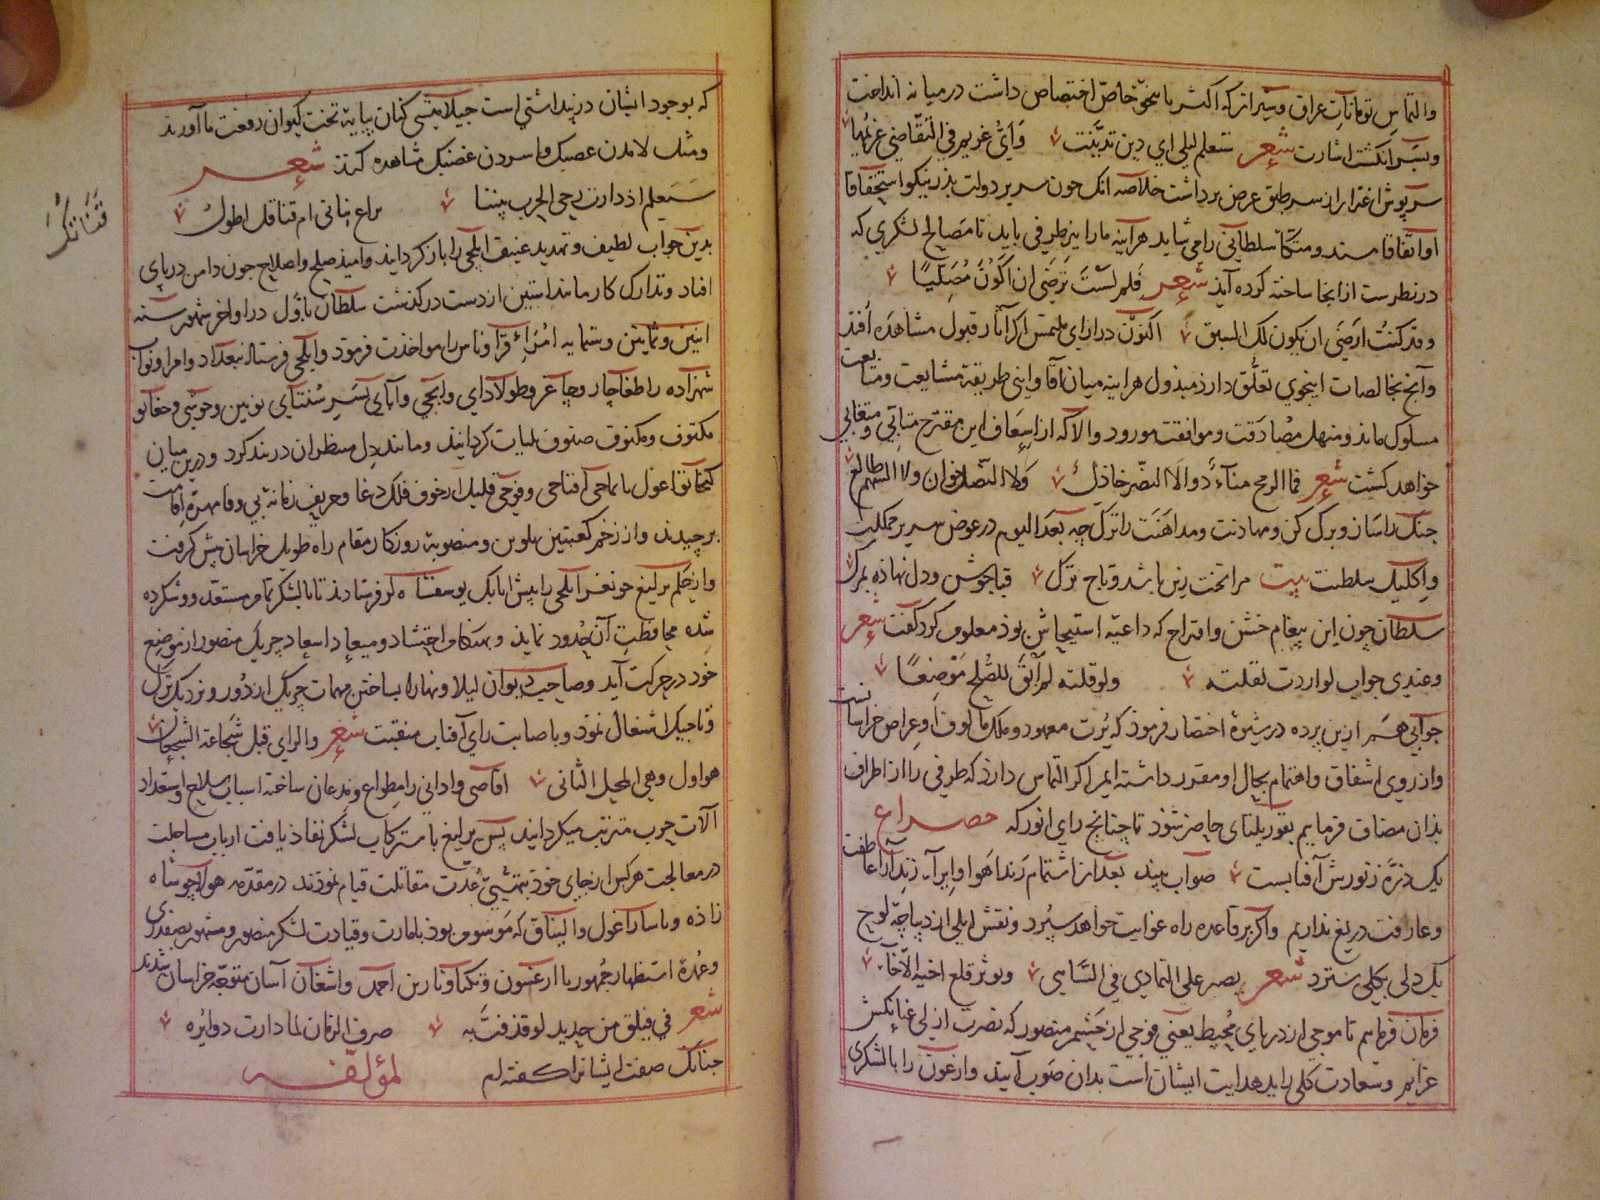 والتماس تومانات عراق و شیراز که اکثر باسنجو خاص اختصاص داشت در میانه انداخت
و بسر انکشت اشارت شعر ستعلم لیلی ای دین تدینت وای غریم فی التقاضی غریمها
سرپوش اغترار از سر طبق عرض برداشت خلاصه انک جون سریر دولت بذر نیکو استحقاقا
او اتفاقا مسند و متکا سلطانی را می شاید هراینه ما را نیز طرفی باید تا مصالح لشکری که
در نظرست از انجا ساخته کرده آیذ شعر فلم لست ترضی ان اکون مصلیا
و قد کنت ارضی ان یکون لک السبق اکنون در ازای ملتمس اکر اثار قبول مشاهده افتذ
وآنج بخالصات اینجوی تعلق دارذ مبذول هراینه میان آقا و اینی طریقه مشایعت و متابعت
مسلوک ماند و منهل مصادقت و موافقت مورود والا که از اسعاف این مقترح متابی و متغابی
خواهد کشت شعر فما الرمح مناء ذوالا النصر خاذل ولا النصل خوان ولا السهم طالع
جنک را ساز و برک کن و مهادنت و مداهنت را ترک چه بعد الیوم در عوض سریر مملکت
و اکلیل سلطنت بیت مرا تخت زین باشد و تاج ترک قبا جوشن و دل نهاذه بمرک
سلطان چون این پیغام خشن و اقتراح که داعیه استیحاش بوذ معلوم کرد کفت شعر
وعندی جواب لو اردت لقلته ولو قلته لم ابق للصلح موضعا
جوابی هم ازین پرده درشیوه اختصار فرموذ که یورت معهود و ملک مالوف او عراص خراسانست
و از روی اشفاق و اهتمام بحال او مقرر داشته ایم اکر التماس دارذ که طرفی را از اطراف
بذان مضاف فرماییم بقوریلتای حاضر شوذ تا چنانج رای انور که مصراع
یک ذره ز نورش آفتابست صواب بیند بعد از اشتمام زنداهوا وابراء زند آرا عاطفت
و عارفت دریغ نداریم و اکر بر قاعده راه غوایت خواهد سپرد و نقش ایلی از دیباچه لوح
یک دلی بکلی سترد شعر یصر علی التمادی فی التناهی و یوثر قلع اخیه الاخاء
فرمان فرماییم تا موجی از دریای محیط یعنی فوجی از حشم منصور که نصرت ازلی غنایکش
عزایم و سعادت کلی راید هدایت ایشان است بدان صوب آیند و ارغون را با لشکری
که بوجود ایشان در پنداشتی است جیلا یمشی کنان بپایه تخت کیوان رفعت ما آورند
و مثل لا تدن عصبک و ما سردن غضبک مشاهده کنند شعر
سیعلم اذ دارت رحی الحرب بیننا براع بنانی ام قناقک اطول
قنانک
بدین جواب لطیف و تهدید عنیف ایلچی را باز کردانید و امید صلح و اصلاح جون دامن در پای
افتاد و تدارک کار مانند استین از دست در کذشت سلطان باول در اواخر شهور سنه
اثنین و ثمانین و ستمایه امراء قراوناس را مواخذت فرموذ و ایلچی فرستاد ببغداد و امرا و نواب
شهزاده را طغاچار و چاغر و طولادای و ایجی و آبای پسر سنتای نوین و جوشی و جغاتو
مکتوف و مکنوف صنوف بلیات کردانید و مانند دل منتظران در بند کرد و درین میان
کیخاتو اغول با تماجی آقتاجی و فوجی قلیل از خوف فلک دغا و حریف زمانه بی وفا مهره اقامت
برچیدند و از زخم کعبتین ملوین و منصوبه روزکار مقام راه طویل خراسان پیش کرفت
و از حکم یرلیغ جوشی ایلچی را پیش اتابک یوسفشاه لر فرستاذند تا با لشکر تمام مستعد و وشکرده
شده محافظت آن حدود نماید و بهنکام احتشاد و میعاد اسعاد چریک منصور از موضع
خود در حرکت آید و صاحب دیوان لیلا و نهارا بساختن مهمات چریک از دور و نزدیک ترک
و تاجیک اشتغال نموذ و باصابت رای آفتاب منقبت شعر والرای قبل شجاعة الشجعان
هو اول وهی المحل الثانی اقاصی و ادانی را مطواع و مذعان ساخته اسباب سلاح و استعداد
آلات حرب مترتب میکردانید پس یرلیغ باستر کاب لشکر نفاذ یافت ارباب مساجلت
در معالجت هرکس از جای خوذ بتمشیت عدت مقاتلت قیام نموذند در مقدمه هولاجو شاه
زاده و باسار اغول و الیناق که موسوم بوذ بامارت و قیادت لشکر منصور و مشهور بصفدری
و عمدة استظهار جمهور با ارغسون و تکنا و نارین احمد و اشغان آسان متوجه خراسان شدند
شعر فی فیلق من حدید لو قذفت به صرف الزمان لما دارت دوایره
جنانک صفت ایشانرا کفته ام لمؤلفه